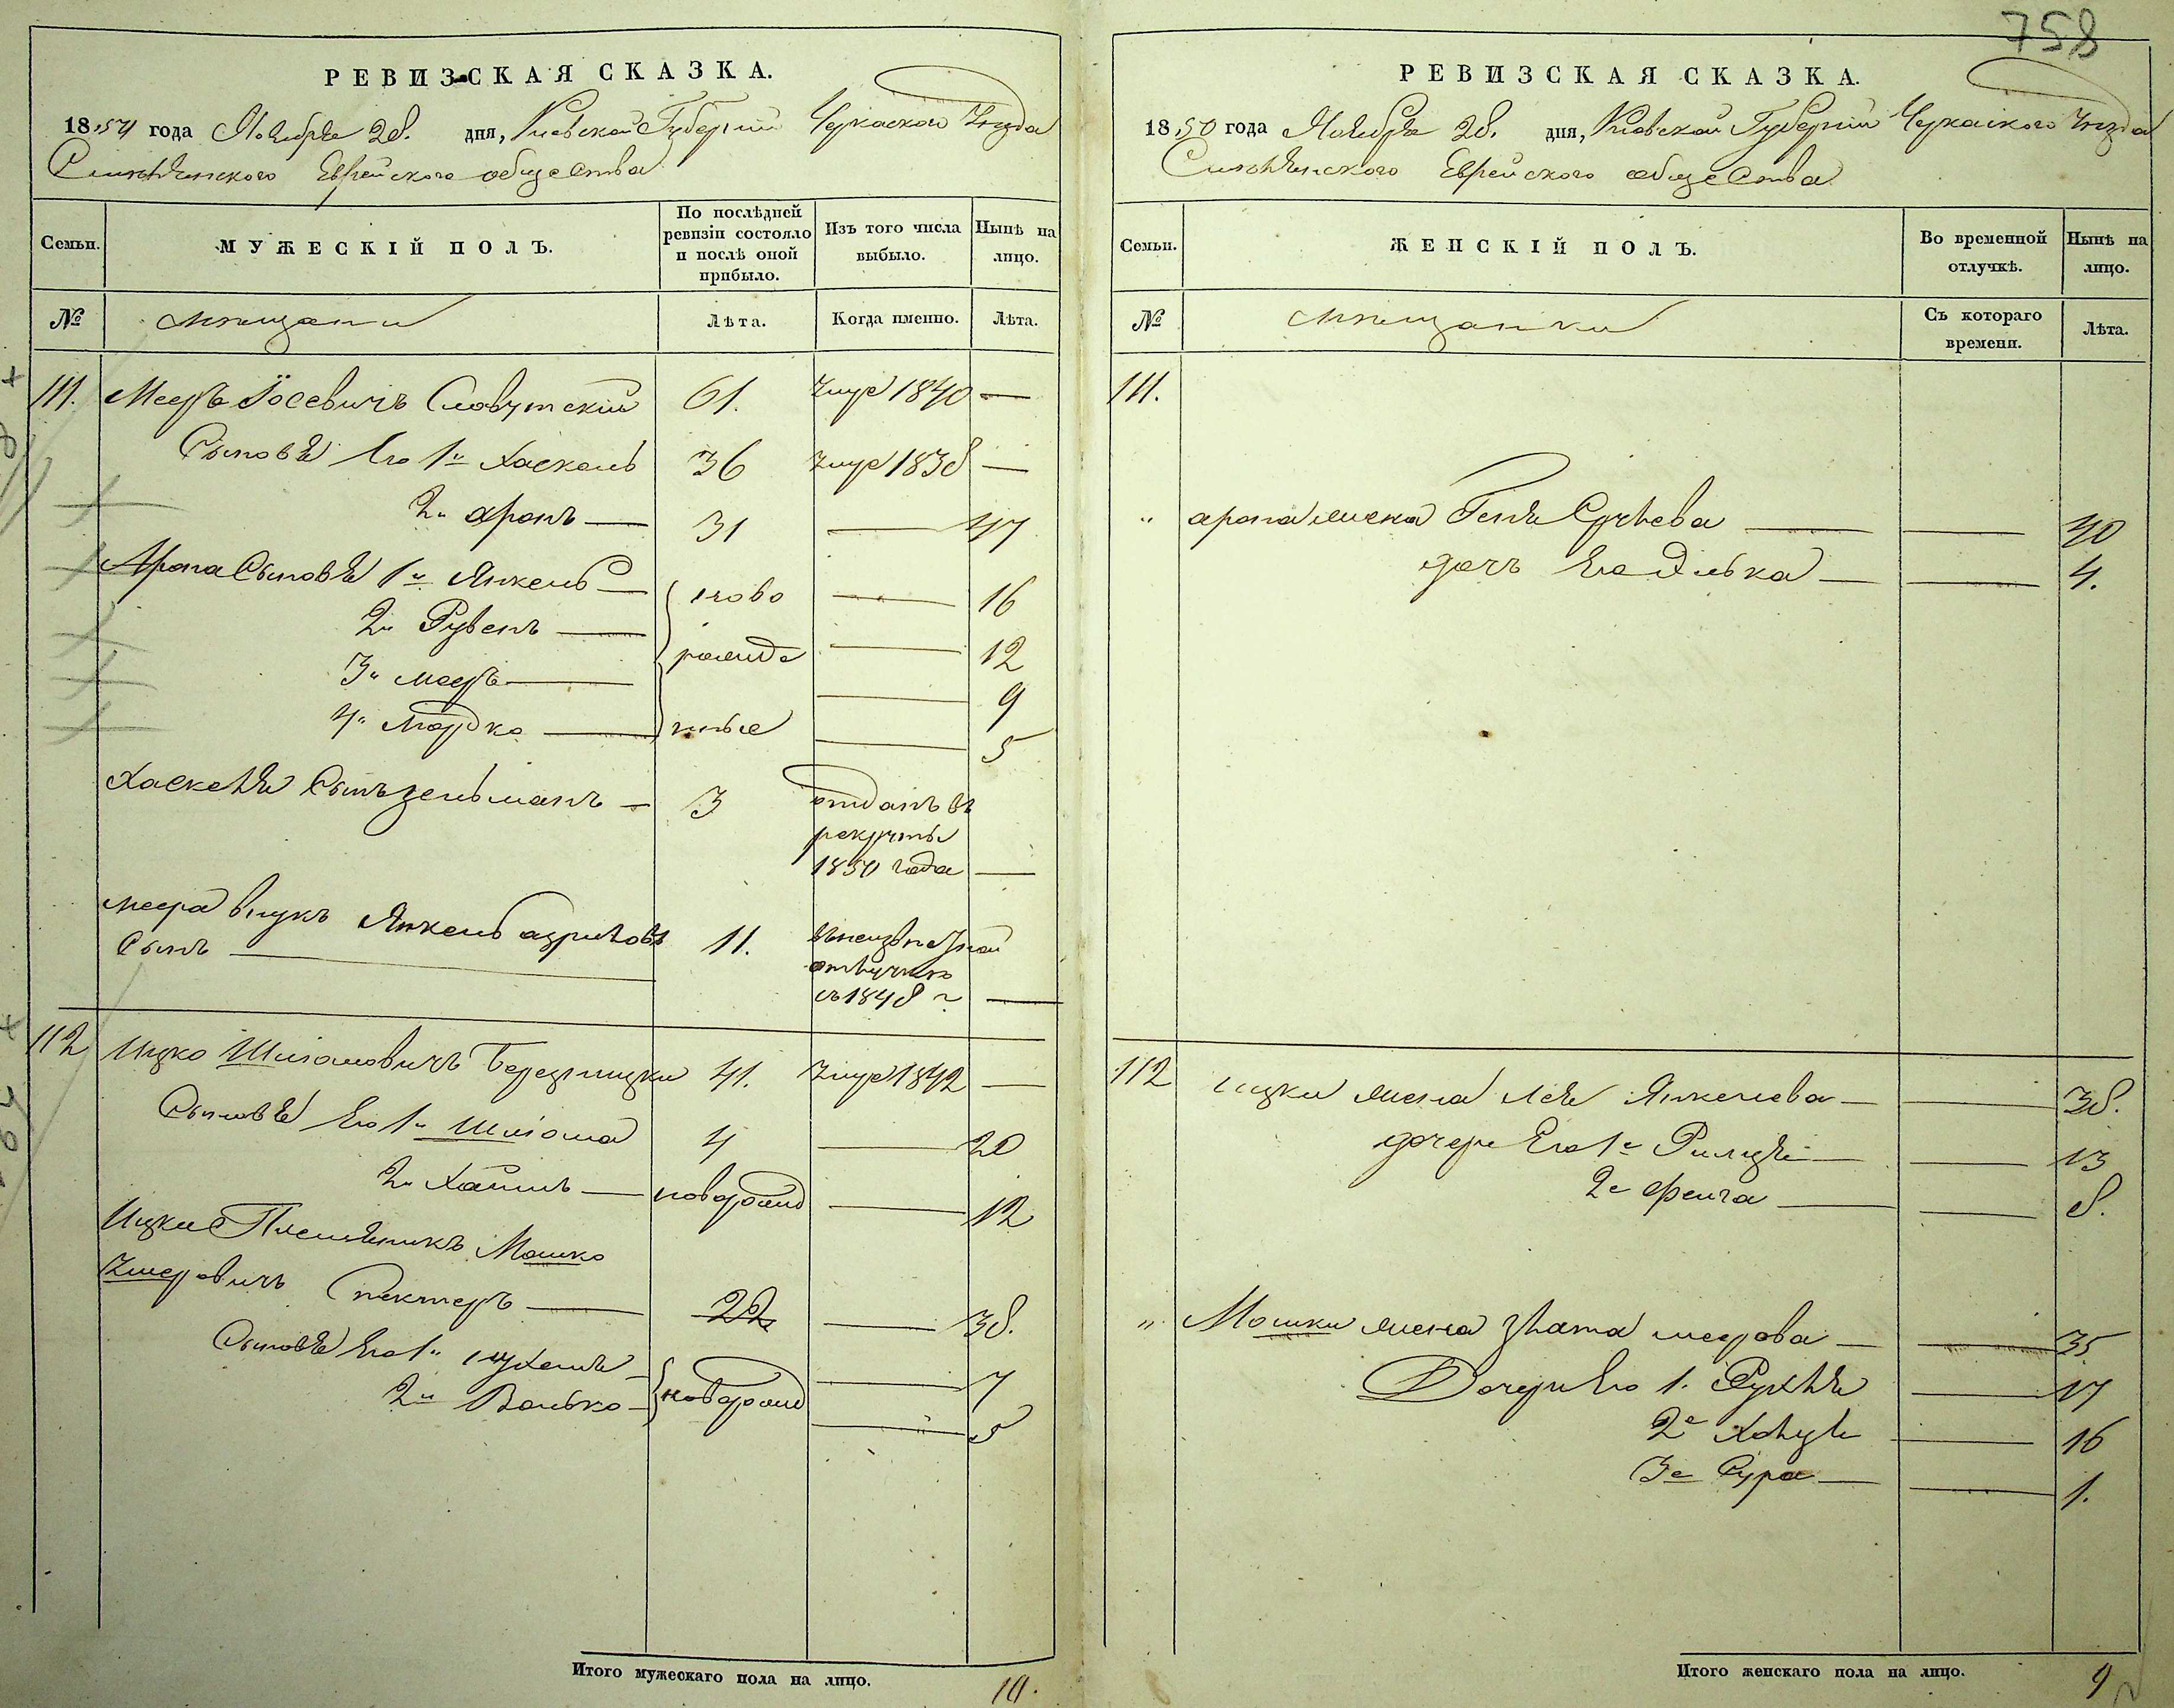 758
РЕВИЗСКАЯ СКАЗКА.
1850 года Ноября 28. дня, Киевской Губернии Черкаского Уезда
Еврейского общества
Семьи.
МУЖЕСКІЙ ПОЛЪ.
По послѣдней ревизіи состояло и послѣ оной прибыло.
Изъ того числа выбыло.
Нынѣ на лицо.
№ мещани Лѣта. Когда именно. Лѣта.
111. Мееръ Іосевичъ Словутскій 61. Умре 1840 —
Сыновья Его 1й Хаскель 36 умре 1838 —
2й Аронъ — 31 — 47
Арона Сыновья 1й Янкель — ново — 16
2й Рувенъ — рожде — 12
3й Мееръ — — 9
4й Мордко — нные — 5
Хаскеля Сынъ Зельманъ — 3 отданъ въ
рекруты
1850 года —
Меера внукъ Янкель
Сынъ — 11. въ неизвестной
отлучке
съ 1848 г —
112 Ицко Шліомовичъ Бердницки 41. Умре 1842 —
Сыновья Его 1й Шліома 4 — 20
2й Хаимъ — новорожд — 12
Ицки Племянникъ Мошко
Умеровичъ — 22 — 38.
Сыновья Его 1й — 7
2й Волько — новорожд — 5
Итого мужескаго пола на лицо. 10.
РЕВИЗСКАЯ СКАЗКА.
1850 года Ноября 28. дня, Киевской Губернии Черкаского Уезда
Еврейского общества
Семьи.
ЖЕНСКІЙ ПОЛЪ.
Во временной отлучкѣ.
Нынѣ на лицо.
№ мещанки Съ котораго времени. Лѣта.
111.
" Арона жена Геня — — 40
дочь Его Элька — — 4.
112 Ицки жена Лея Янкелева — — 38.
дочери Его 1я — — 13
2я Фейга — — 8.
" Мошки жена Злата меерова — — 35
Дочери Его 1. Рухля — 17
2я — 16
3я Сура — — 1.
Итого женскаго пола на лицо. 9